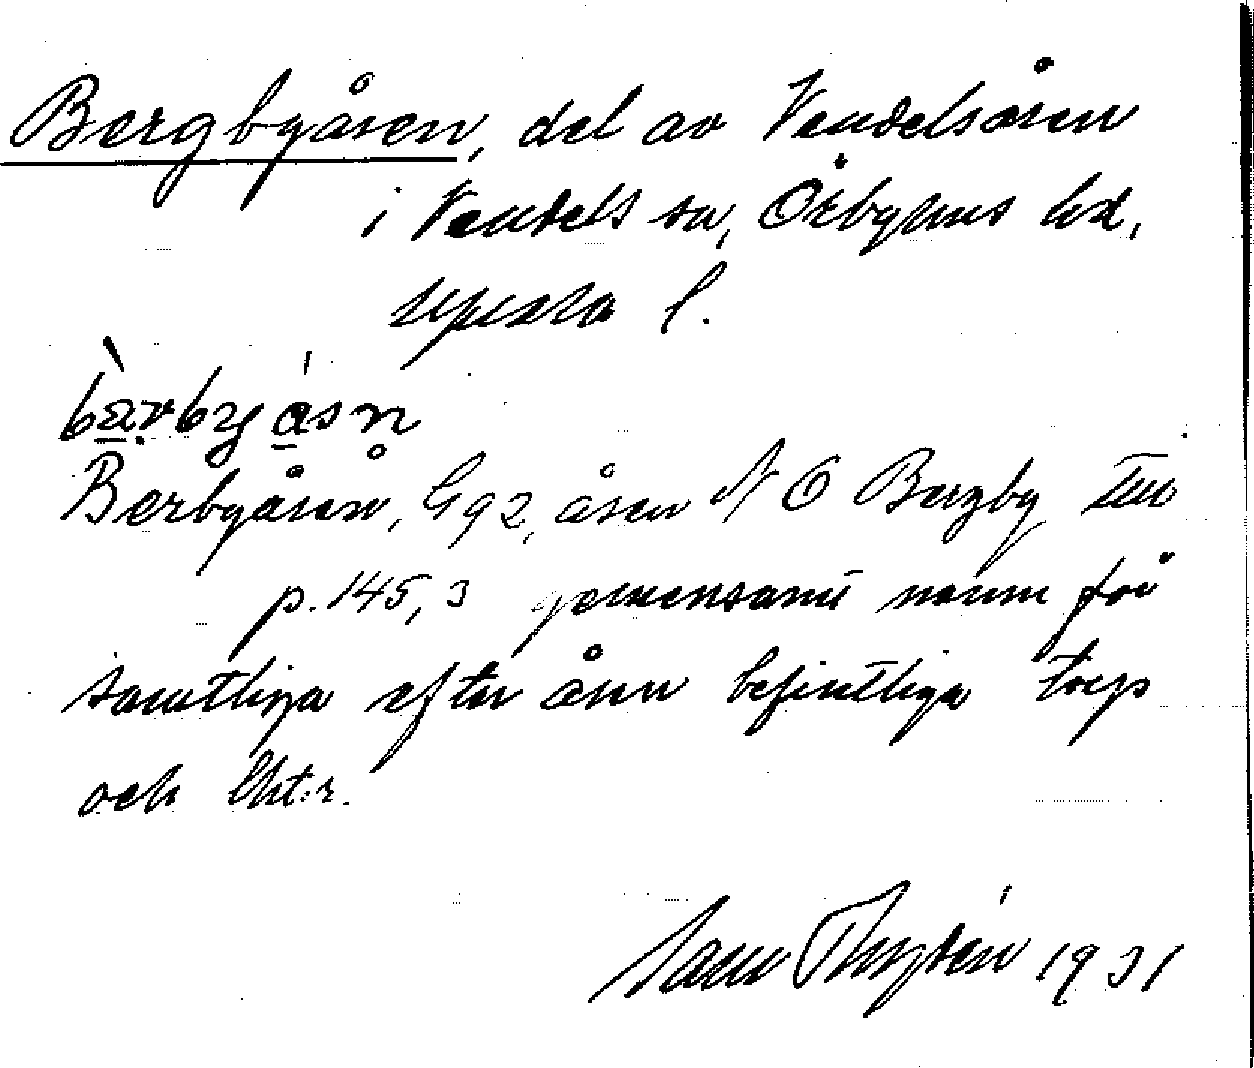 Bergbyåsen, del av Vendelsåsen
i Vendels sn, Örbyhus hd,
Uppsala l.
bàrbyásn
Berbyåsen, G 92, åsen N O Bergby
p. 145, 3 gemensamt namn för
samtliga efter åsen befintliga torp
och lht:r.
Sam 1931